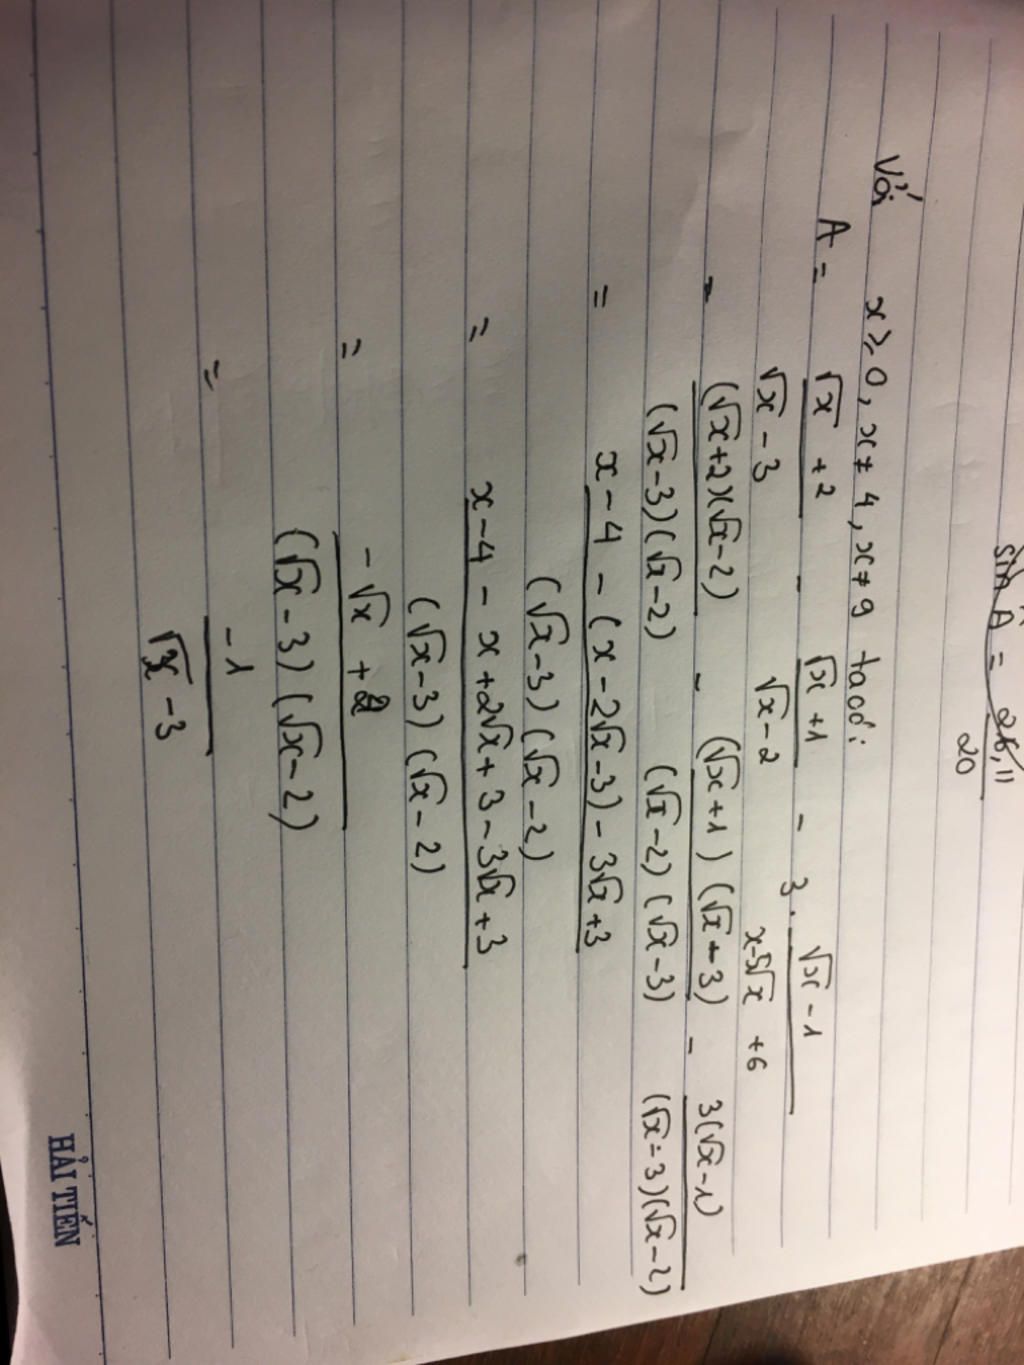 sin A = 26,11
20
Với x ≥ 0, x ≠ 4, x ≠ 9 ta có:
A = √x + 2 - √x + 1 - 3. √x - 1
√x - 3 √x - 2 x - 5√x + 6
= (√x+2)(√x-2) - (√x+1)(√x-3) - 3(√x-1)
(√x-3)(√x-2) (√x-2)(√x-3) (√x-3)(√x-2)
= x - 4 - (x - 2√x - 3) - 3√x + 3
(√x-3)(√x-2)
= x - 4 - x + 2√x + 3 - 3√x + 3
(√x-3)(√x-2)
= -√x + 2
(√x-3)(√x-2)
= -1
√x - 3
HẢI TIẾN